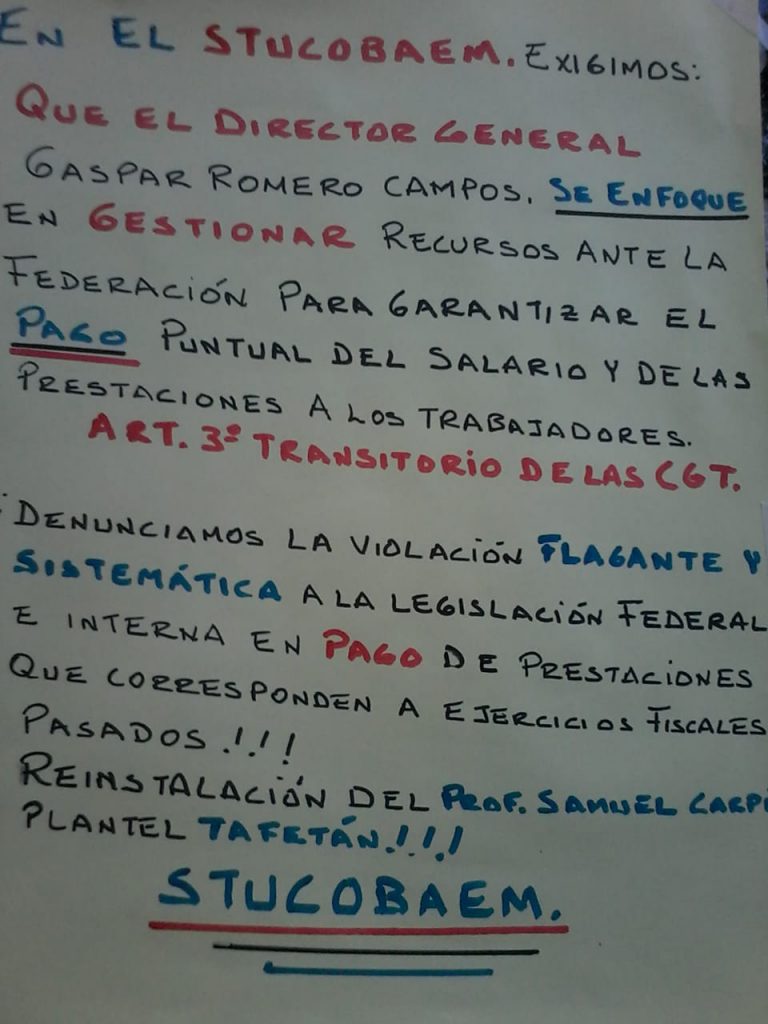 EN EL STUCOBAEM. EXIGIMOS:
QUE EL DIRECTOR GENERAL
GASPAR ROMERO CAMPOS. SE ENFOQUE
EN GESTIONAR RECURSOS ANTE LA
FEDERACIÓN PARA GARANTIZAR EL
PAGO PUNTUAL DEL SALARIO Y DE LAS
PRESTACIONES A LOS TRABAJADORES.
ART. 3º TRANSITORIO DE LAS CGT.
DENUNCIAMOS LA VIOLACIÓN FLAGANTE Y
SISTEMÁTICA A LA LEGISLACIÓN FEDERAL
E INTERNA EN PAGO DE PRESTACIONES
QUE CORRESPONDEN A EJERCICIOS FISCALES
PASADOS!!!
REINSTALACIÓN DEL PROF. SAMUEL CARPI
PLANTEL TAFETÁN!!!
STUCOBAEM.